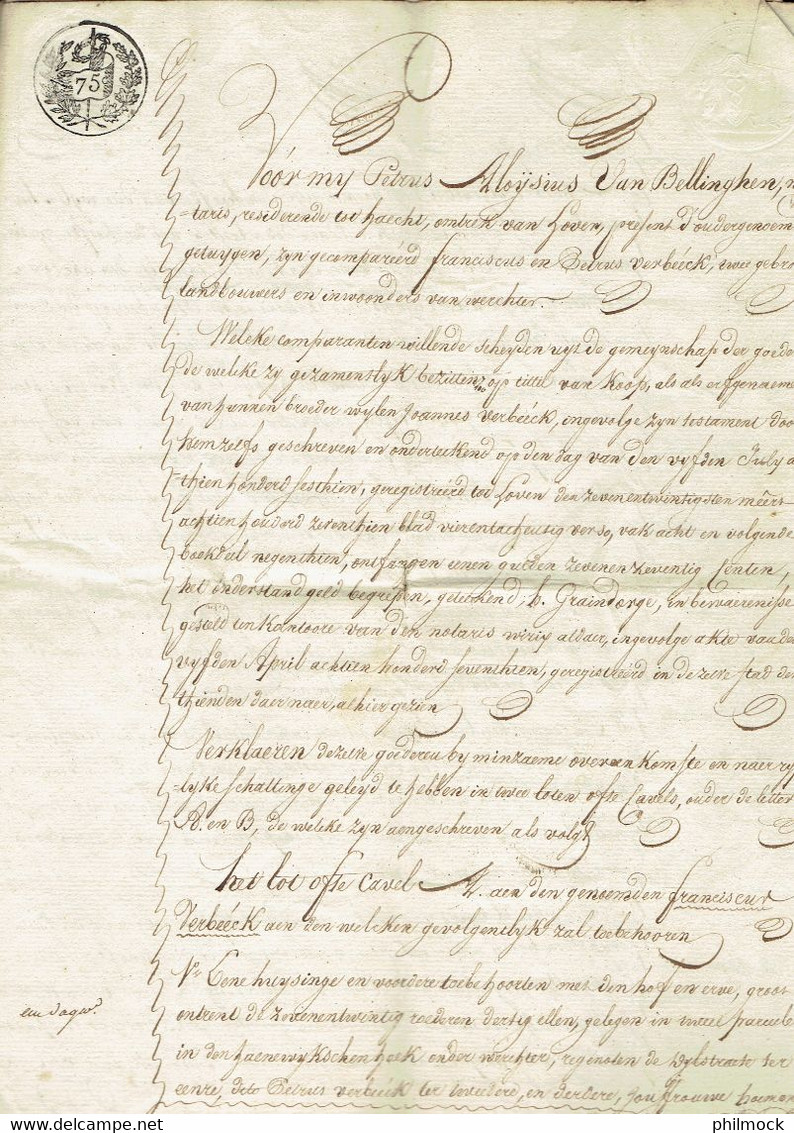 75
Vóór my Petrus Aloÿsius Van Bellinghen, n
=taris, residerende tot haecht, omtrek van Loven, present d'oudergenoem
getuygen, zyn gecompariérd franciscus en Petrus verbéeck, twee gebro
landbouwers en inwoonders van werchter.
Welke comparanten willende scheyden uyt de gemeynschap der goede
de welke zy gezamentlyk bezitten, op tittel van Koop, als als erfgenaeme
van hunnen broeder wylen Joannes verbéeck, ingevolge zyn testament doo
hem zelfs geschreven en onderteekend op den dag van den vyfden July a
thien honderd sesthien, geregistréérd tot Loven den zevenentwintigsten méêrt
achtien honderd zeventhien blad vierentachentig verso, vak acht en volgende
boekdeel negenthien, ontfangen eenen gulden zevenenzeventig Centen,
het onderstand geld begrepen, geteekend; b. Graindorge, en bewaerenisse
gesteld ten kantoore van den notaris wirix aldaer, ingevolge akte van de
vyfden April achtien honderd seventhien, geregistréérd in de zelve stad den
thienden daer naer, alhier gezien
Verklaeren dezelve goederen by minzaeme overeenkomste en naer ry
=lyke schattinge geleyd te hebben in twee loten ofte Cavels, onder de letter
A. en B, de welke zyn aengeschreven als volgt
het lot ofte Cavel A. aen den genoemden franciscus
Verbéeck aen den welken gevolgentlyk zal toebehooren
1° Eene huysinge en voordere toebehoorten met den hof en erve, groot
een dagw.d
ontrent de zevenentwintig roederen dertig ellen, gelegen in twee parceele
in den haenewykschen hoek onder werchter, regenoten de wylstraete ter
eenre, dito Petrus verbéeck ter tweedere, en derdere, Jouffrouwe
philmock